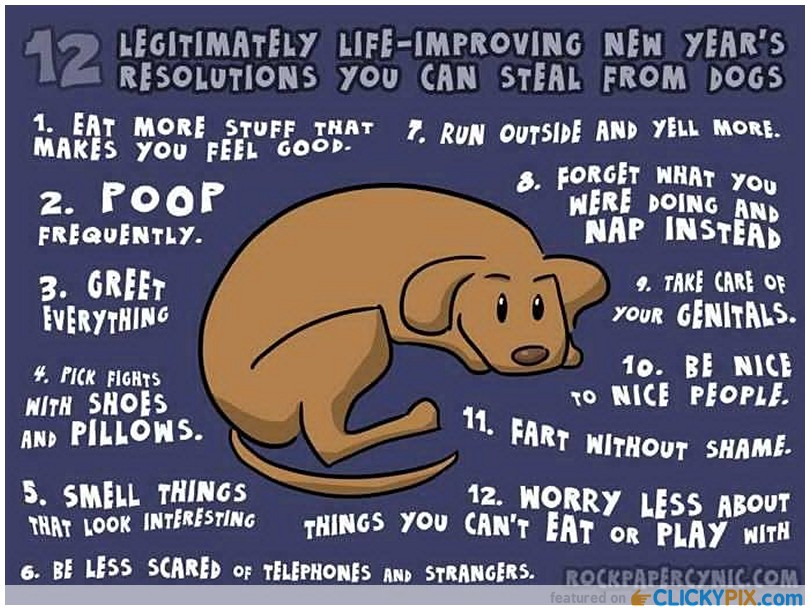 12 LEGITIMATELY LIFE-IMPROVING NEW YEAR'S
RESOLUTIONS YOU CAN STEAL FROM DOGS
1. EAT MORE STUFF THAT
MAKES YOU FEEL GOOD.
2. POOP
FREQUENTLY.
3. GREET
EVERYTHING
4. PICK FIGHTS
WITH SHOES
AND PILLOWS.
5. SMELL THINGS
THAT LOOK INTERESTING
6. BE LESS SCARED OF TELEPHONES AND STRANGERS.
7. RUN OUTSIDE AND YELL MORE.
8. FORGET WHAT YOU
WERE DOING AND
NAP INSTEAD
9. TAKE CARE OF
YOUR GENITALS.
10. BE NICE
TO NICE PEOPLE.
11. FART WITHOUT SHAME.
12. WORRY LESS ABOUT
THINGS YOU CAN'T EAT OR PLAY WITH
ROCKPAPERCYNIC.COM
featured on CLICKYPIX.com